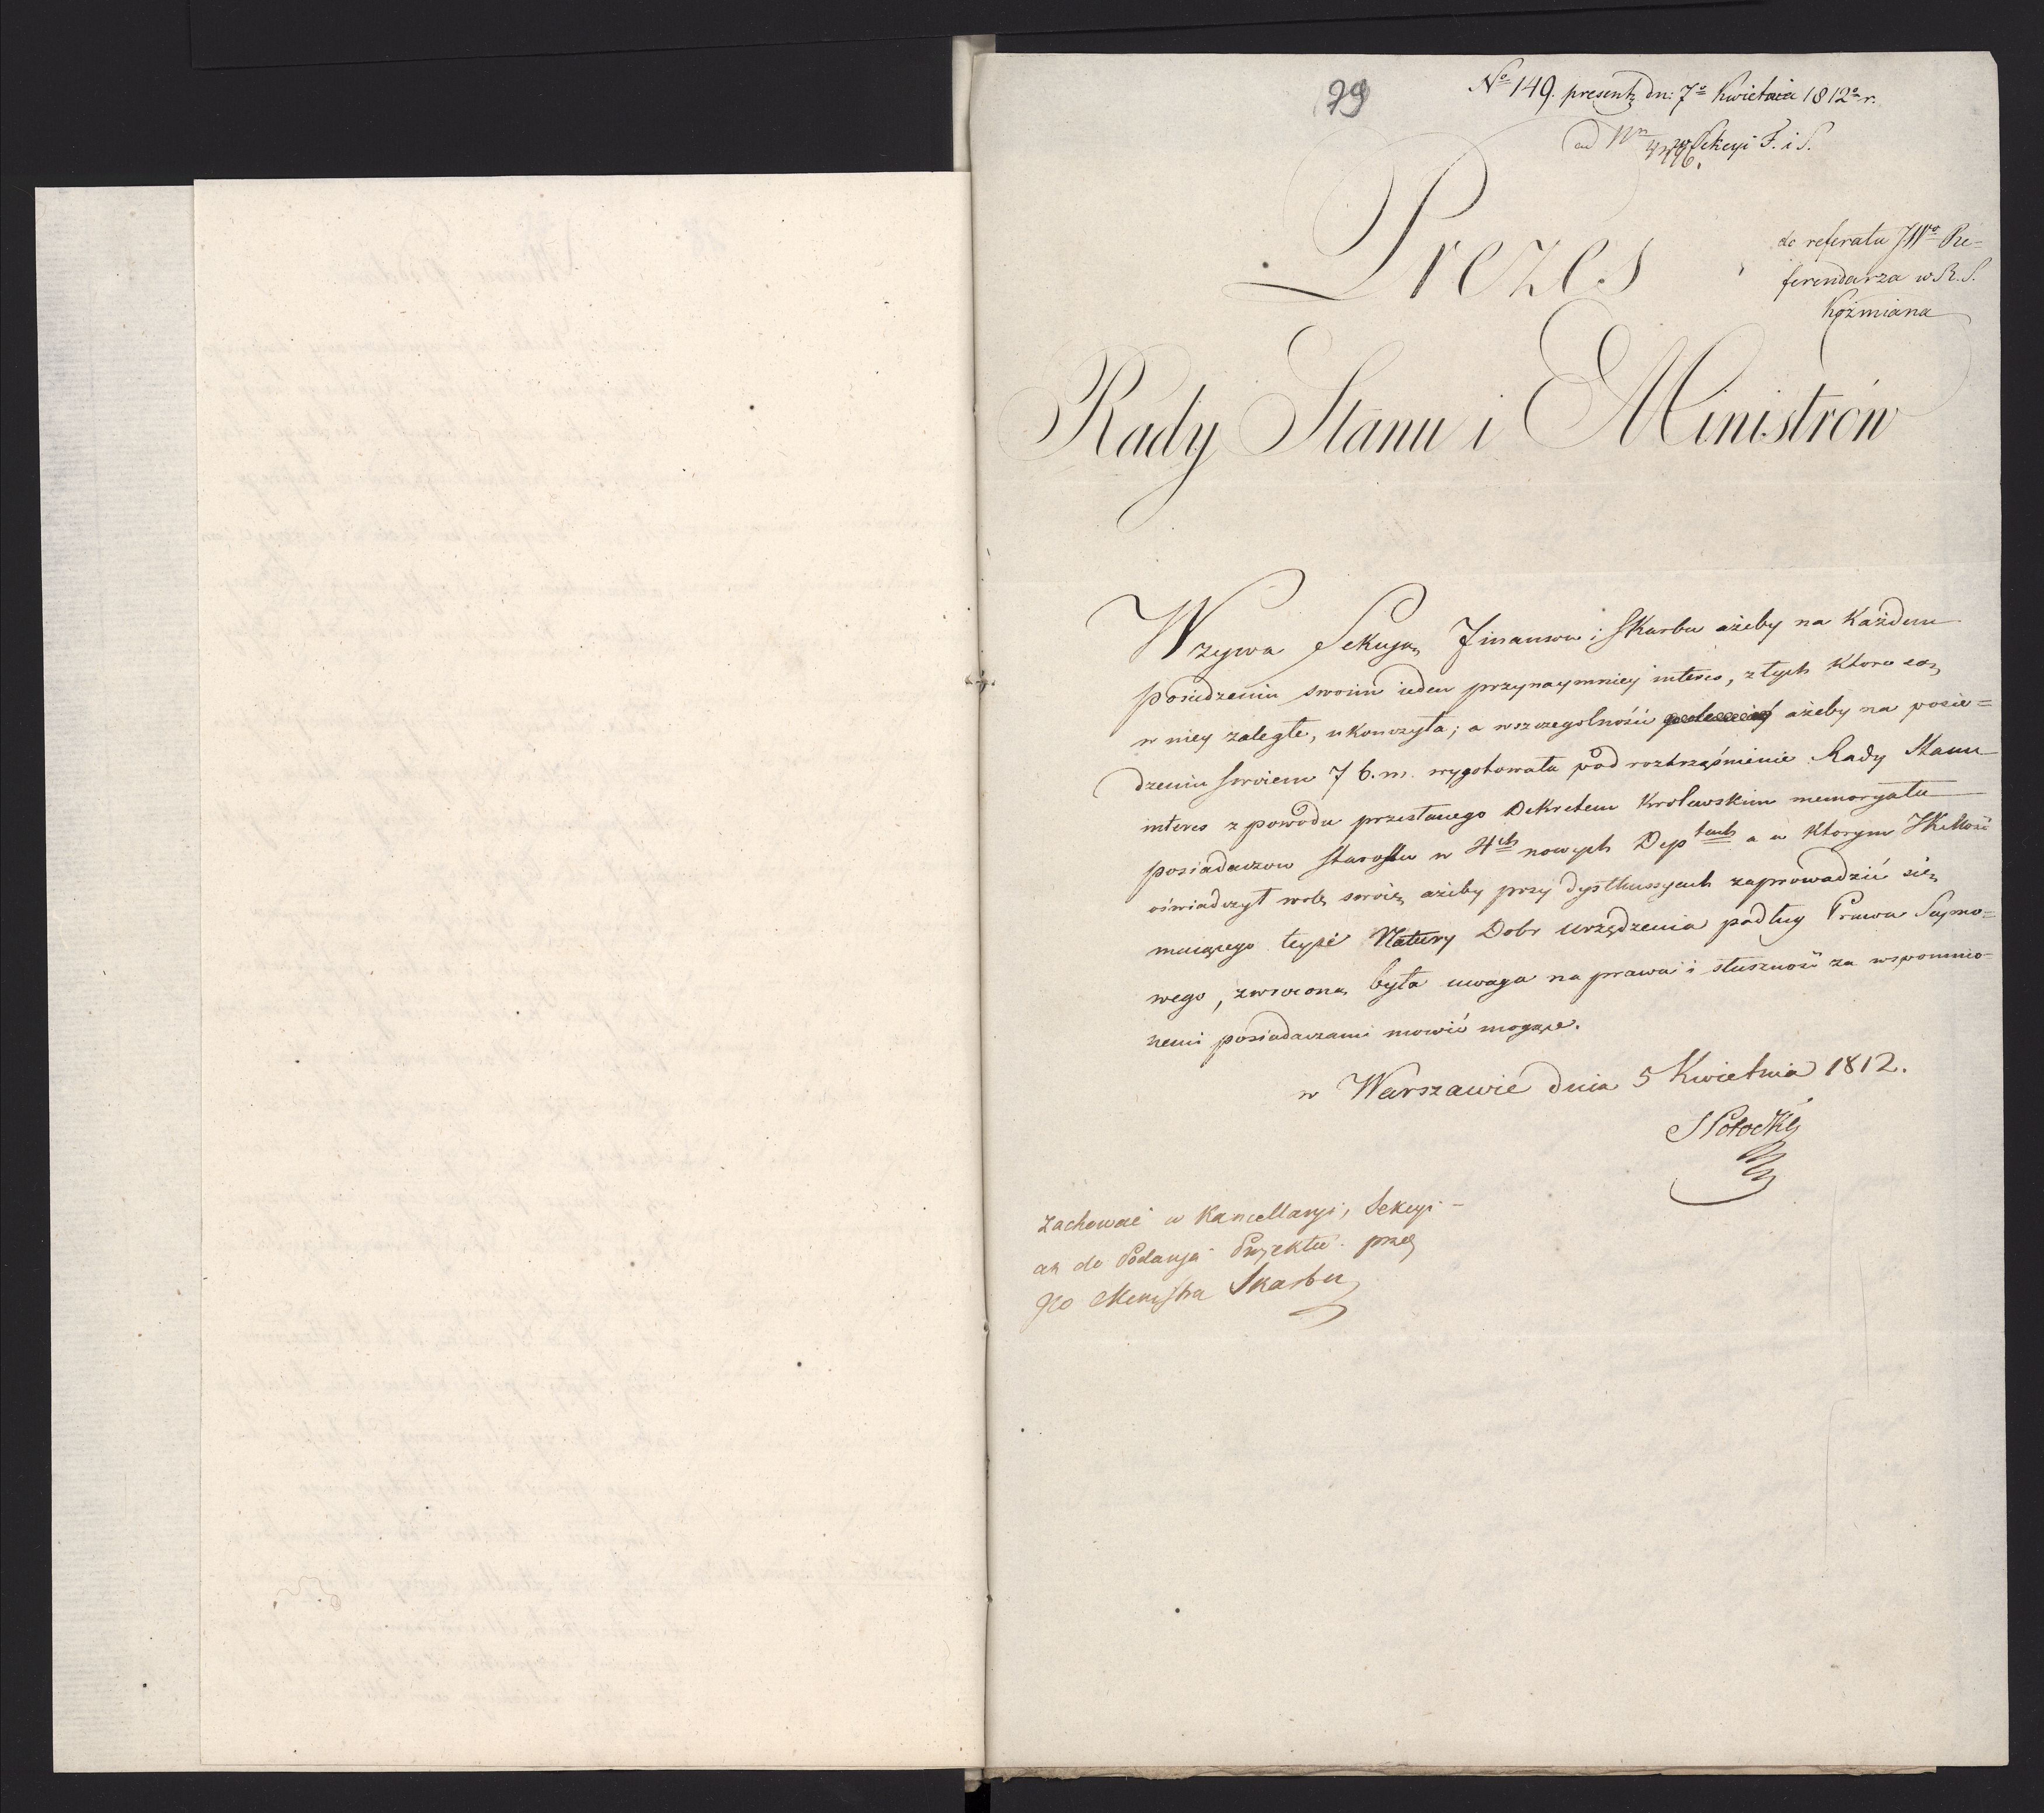 79
No 149. presentz dn: 7o Kwietnia 1812o r.
ad Nrm w Sekcyi F. i S.
Prezes
do referatu JWo Re=
ferendarza w R. S.
Koźmiana
Rady Stanu i Ministrów
Wzywa Sekcyą Finansów i Skarbu ażeby na każdem
posiedzeniu swoim ieden przynaymniey interes, z tych ktore są
w niey zaległe, ukonczyła; a wszczegolności ażeby na posie=
dzeniu swoiem 7 b. m. wygotowała pod roztrząśnienie Rady Stanu
interes z powodu przesłanego Dekretem Krolewskim memoryału
posiadaczow Starostw w 4ch nowych Deptach a w ktorym JKMość
oświadczył wolą swoią ażeby przy dyskussyach zaprowadzić się
maiącego teyże Natury Dobr urządzenia podług Prawa Seymo=
wego, zwrocona była uwaga na prawa i słuszność za wspomnio=
nemi posiadaczami mowić mogące.
w Warszawie dnia 5 Kwietnia 1812.
S Potocki
Zachować w Kancellaryi, Sekcyi
aż do Podania Projektu przez
JWo Ministra Skarbu